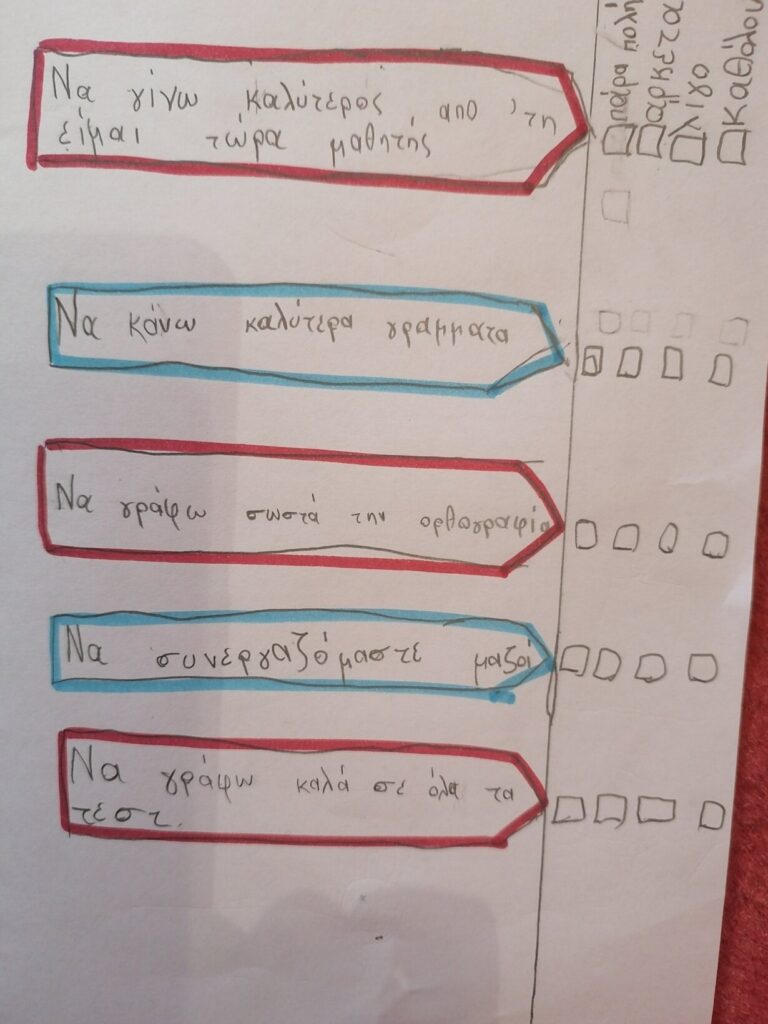 πάρα πολή
άρκετα
λίγο
καθόλου
Να γίνω καλύτερος απο 'τη
είμαι τώρα μαθητής
Να κάνω καλύτερα γραμματα
Να γράφω σωστά την ορθωγραφία
Να συνεργαζόμαστε μαζοί
Να γράφω καλά σε όλα τα
τεστ.